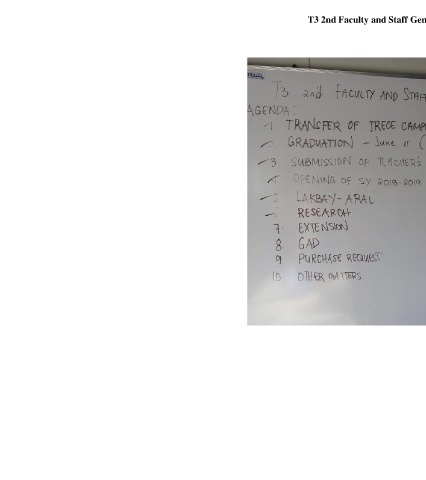 T3 2nd Faculty and Staff Gen
T3 2nd FACULTY AND STAFF
AGENDA:
1 TRANSFER OF TRECE CAMP
GRADUATION - June 11 (
3 SUBMISSION OF TEACHER'S
OPENING OF SY 2018-2019
LAKBAY-ARAL
RESEARCH
7. EXTENSION
8. GAD
9 PURCHASE REQUEST
10. OTHER MATTERS